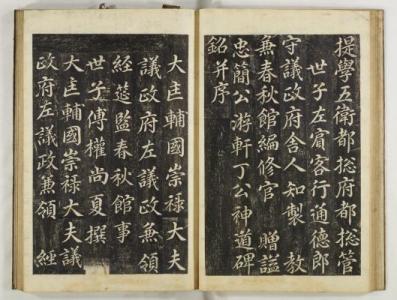 提學五衛都摠府都摠管
世子左賓客行通德郎
守議政府舍人知製 教
兼春秋館編修官 贈謚
忠簡公游軒丁公神道碑
銘并序
大匡輔國崇祿大夫
議政府左議政兼領
經筵監春秋館事
世子傅權尚夏撰
大匡輔國崇祿大夫議
政府左議政兼領 經